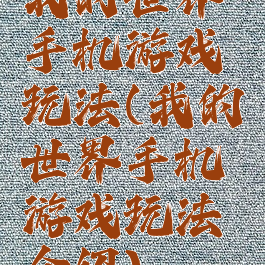 我的世界
手机游戏
玩法(我的
世界手机
游戏玩法
介绍)